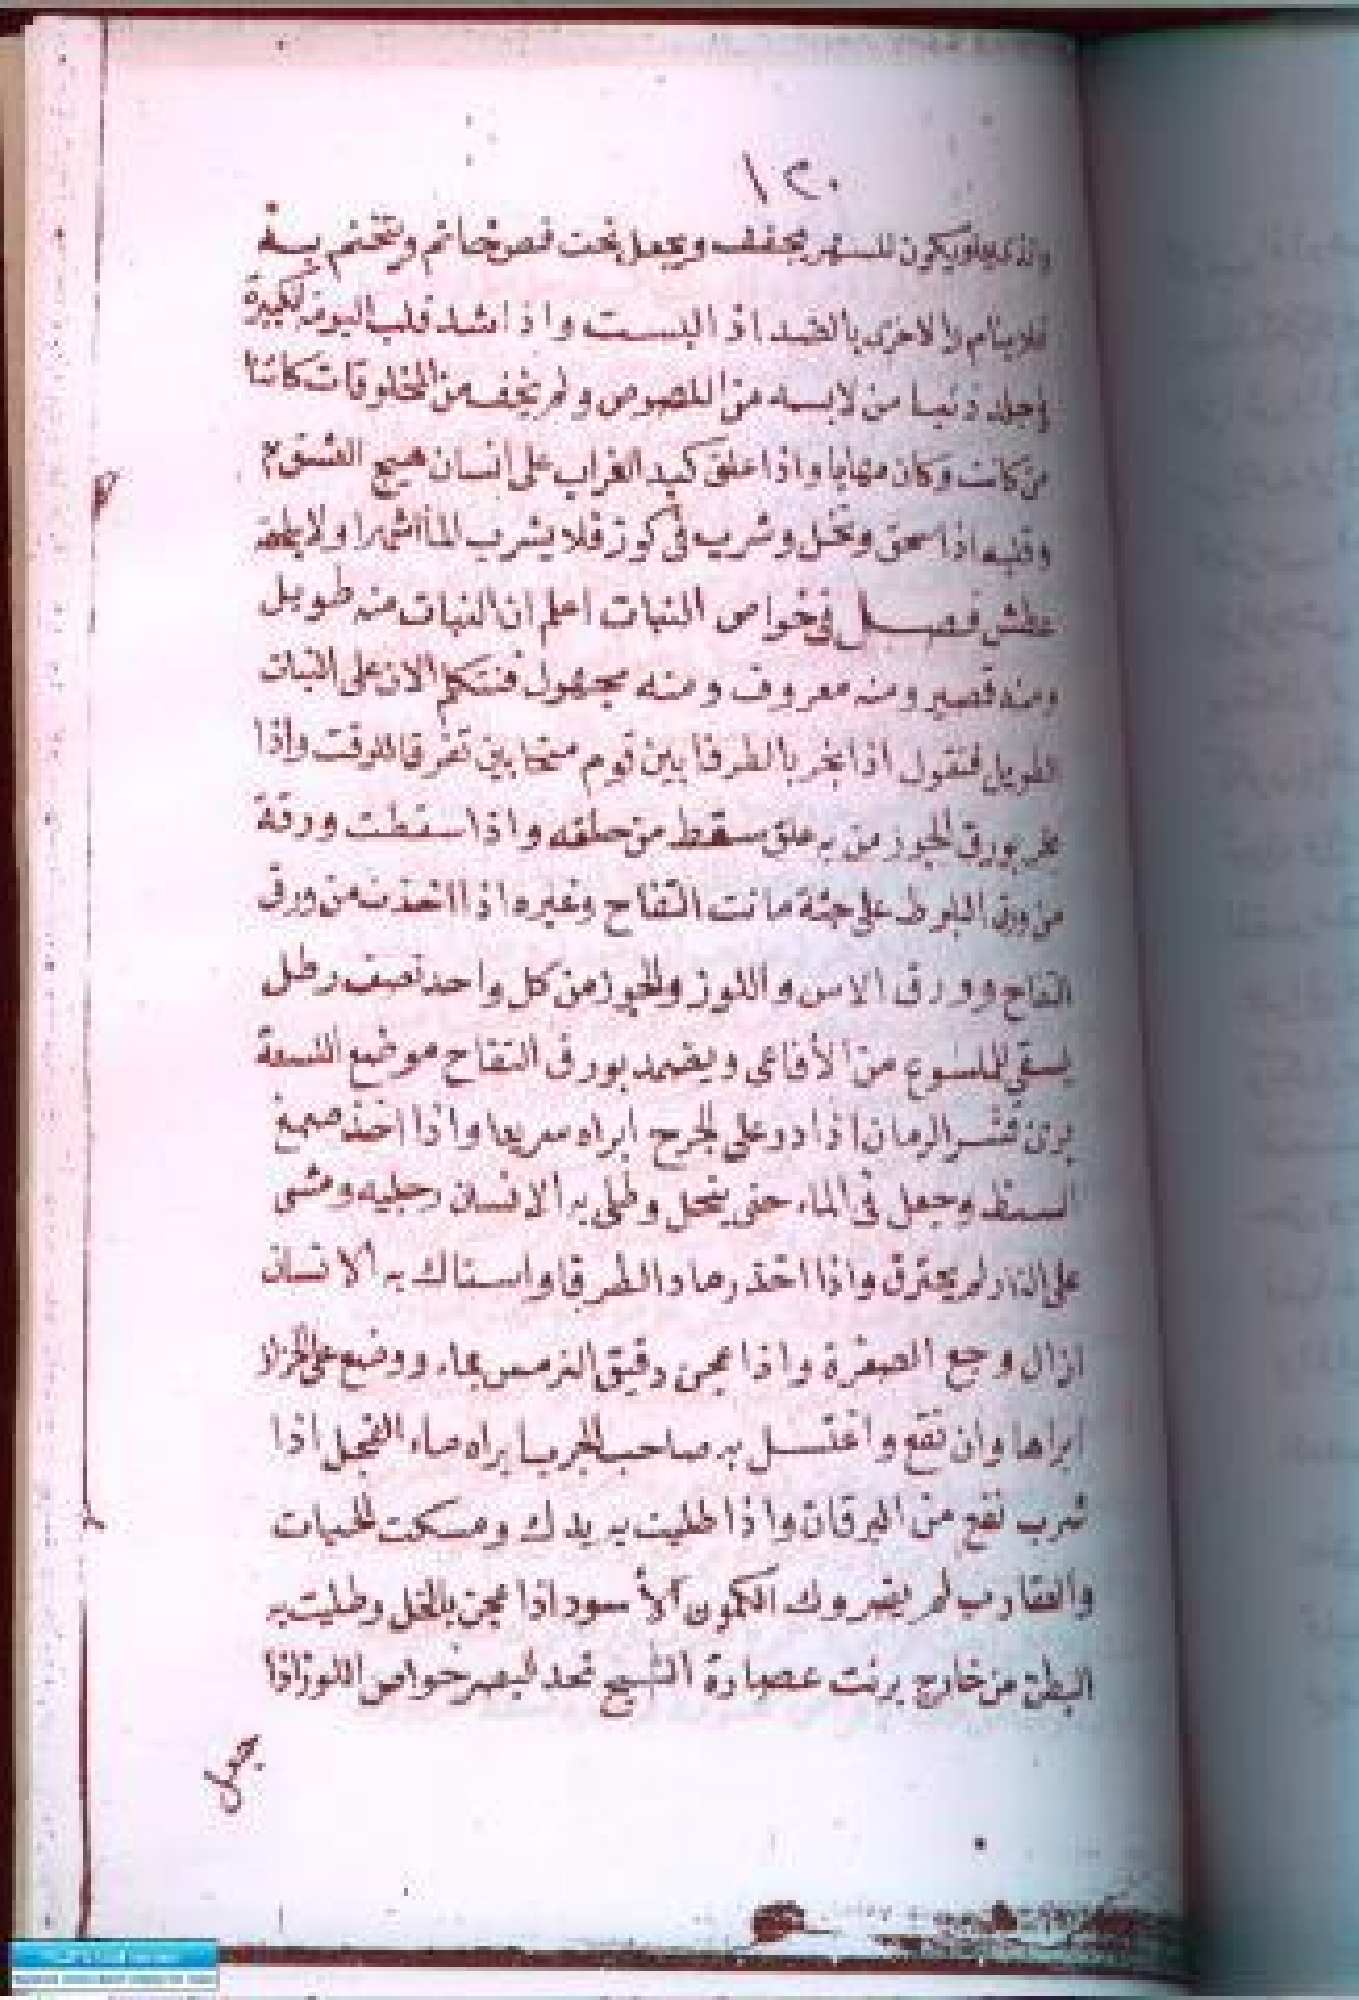 ١٢٠
والذى يعلو يكون للسهر يجفف ويجعل تحت فص خاتم ويتختم به
فلا ينام والاخرى بالضد اذا البست واذا شد قلب البومة الكبيرة
فى جلد ذئب امن لابسه من اللصوص ولم يخف من المخلوقات كائنا
من كانت وكان مهابا واذا علق كبد الغراب على انسان هيج العشق
وقلبه اذا سحق ونخل وشرب فى كوز فلا يشرب الماء شهرا ولا يلحقه
عطش فصل فى خواص النبات اعلم ان النبات منه طويل
ومنه قصير ومنه معروف ومنه مجهول فنتكلم الان على النبات
الطويل فنقول اذا بخر بالطرفا بين قوم متحابين تفرقا للوقت واذا
بخر بورق الجوز من به علق سقط من حلقه واذا سقطت ورقة
من ورق البلوط على حية ماتت التفاح وغيره اذا اخذت من ورق
التفاح وورق الاس واللوز والجوز من كل واحد نصف رطل
يسقى للملسوع من الأفاعى ويضمد بورق التفاح موضع اللسعة
برئ قشر الرمان اذا در على الجرح ابراه سريعا واذا اخذ صمغ
السنط وجعل فى الماء حتى ينحل وطلى به الانسان رجليه ومشى
على النار لم يحترق واذا اخذ رماد الطرفا واستاك به الانسان
ازال وجع الصفرة واذا عجن دقيق الترمس بماء ووضع على الحزاز
ابراها وان نقع واغتسل به صاحب الجرب ابراه ماء الفجل اذا
شرب نفع من اليرقان واذا طليت به يدك ومسكت الحيات
والعقارب لم يضروك الكمون الأسود اذا عجن بالخل وطليت به
البطن من خارج برئت عصارة الشيح تحد البصر خواص اللوز اذا
جعل